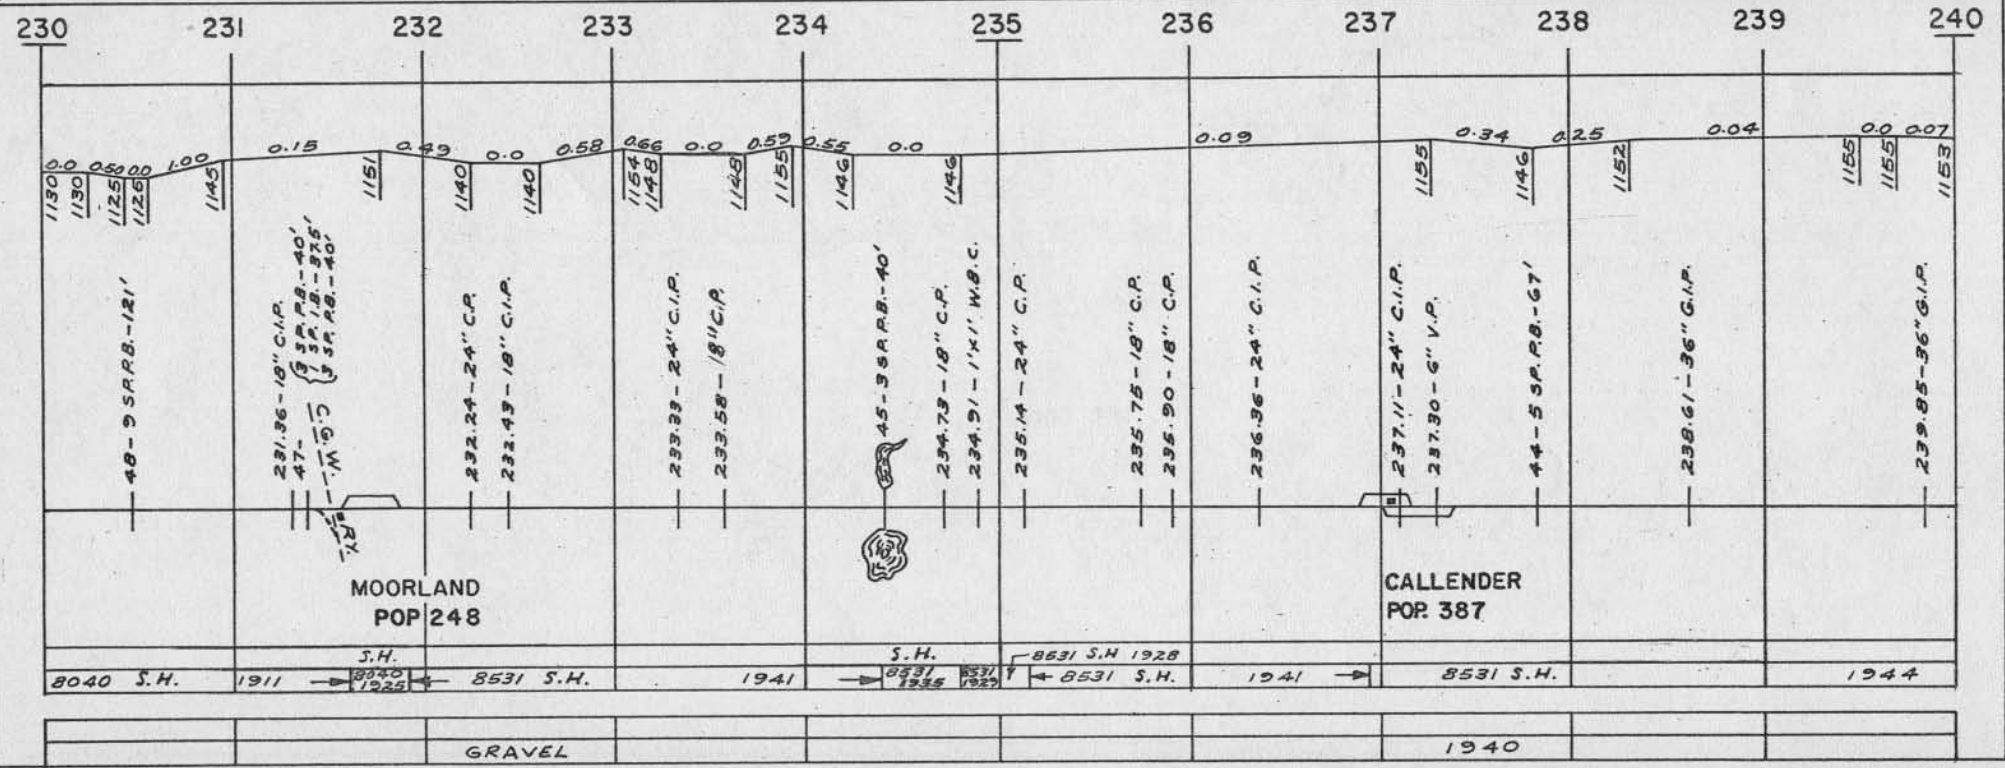 230 231 232 233 234 235 236 237 238 239 240
0.0 0.50 0.0 1.00 0.15 0.49 0.0 0.58 0.66 0.0 0.59 0.55 0.0 0.09 0.34 0.25 0.04 0.0 0.07
1130 1130 1125 1125 1145 1151 1140 1140 1154 1148 1148 1155 1146 1146 1155 1146 1152 1155 1155 1153
48-9 SP. P.B.-121'
231.36-18" C.I.P.
47-
3 SP. P.B.-40'
1 SP. I.B.-37.5'
3 SP. P.B.-40'
C.G.W.
RY.
232.24-24" C.P.
232.43-18" C.I.P.
233.33-24" C.I.P.
233.58-18" C.P.
45-3 SP. P.B.-40'
234.73-18" C.P.
234.91-1'x1' W.B.C.
235.14-24" C.P.
235.75-18" C.P.
235.90-18" C.P.
236.36-24" C.I.P.
237.11-24" C.I.P.
237.30-6" V.P.
44-5 SP. P.B.-67'
238.61-36" C.I.P.
239.85-36" C.I.P.
MOORLAND
POP 248
CALLENDER
POP. 387
S.H. S.H. 8531 S.H 1928
8040 S.H. 1911 8040 1925 8531 S.H. 1941 8531 1935 8531 1929 8531 S.H. 1941 8531 S.H. 1944
GRAVEL 1940